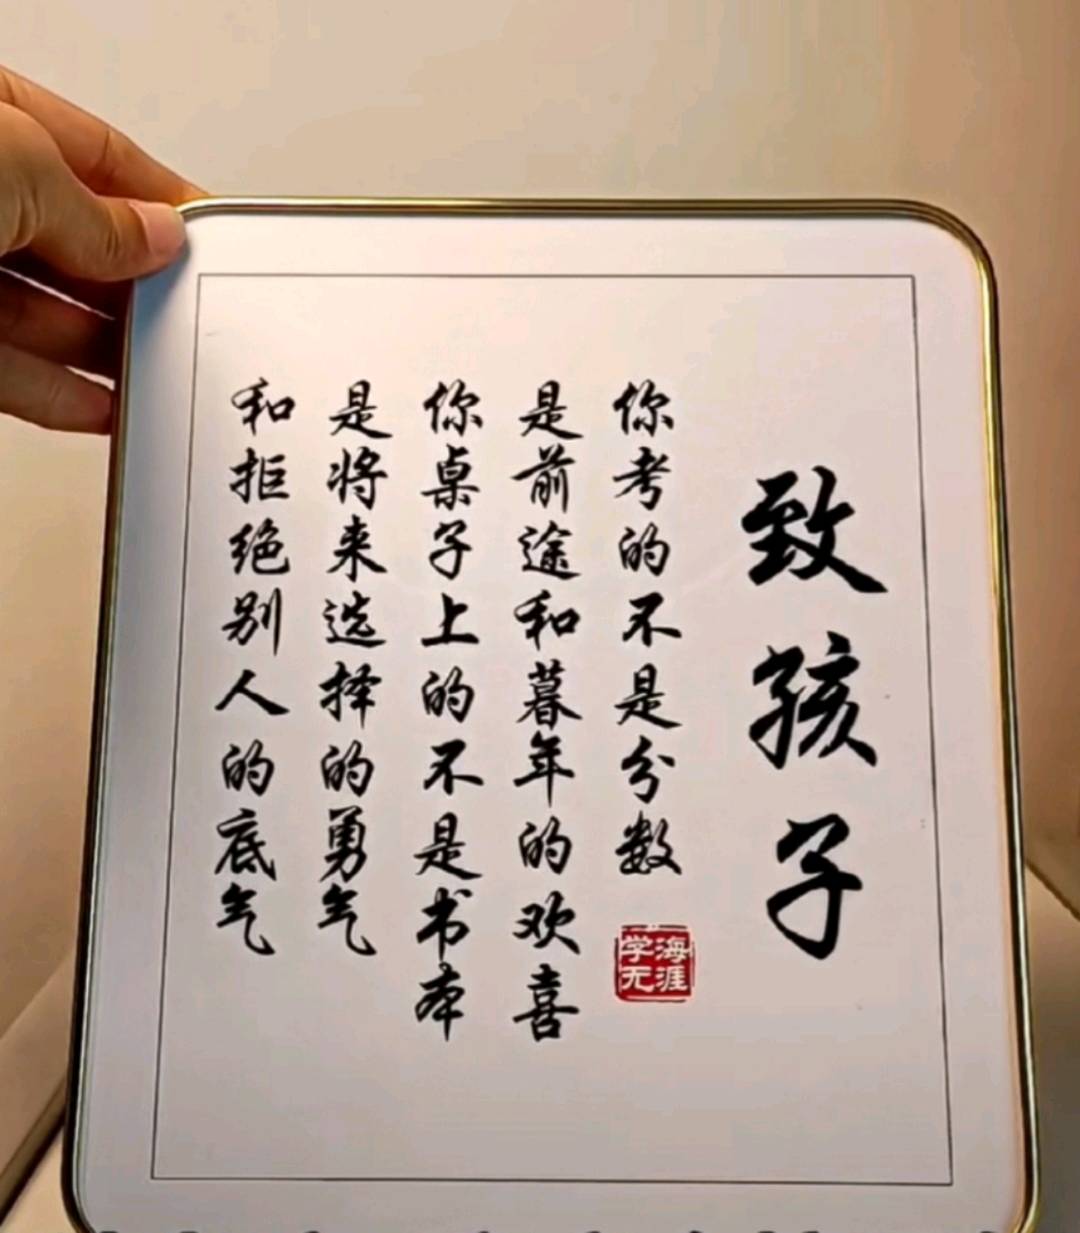 致孩子
你考的不是分数
是前途和暮年的欢喜
你桌子上的不是书本
是将来选择的勇气
和拒绝别人的底气
学海无涯